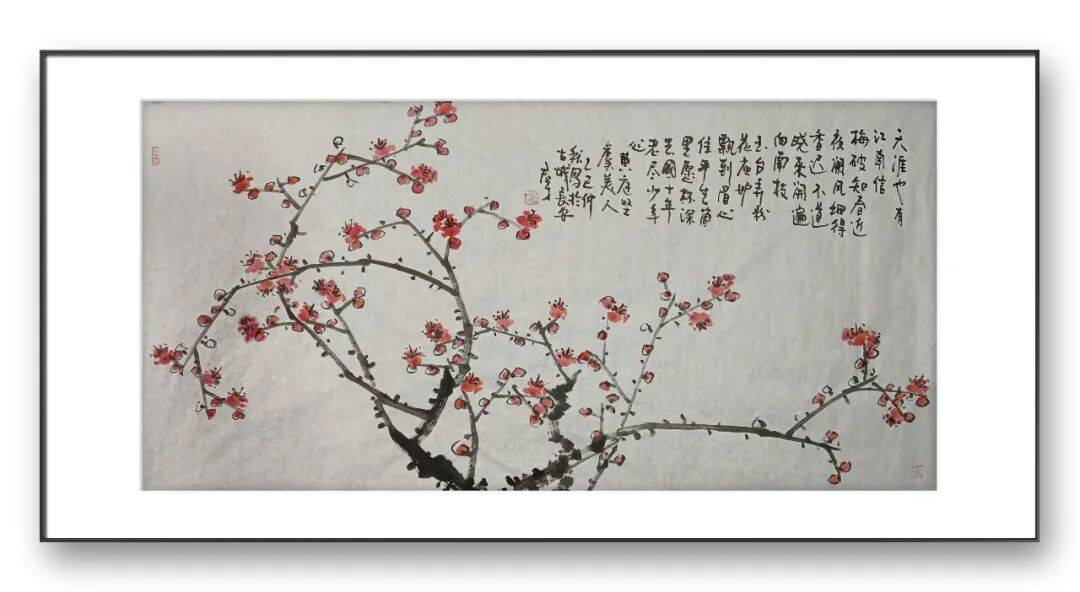 天涯也有
江南信
梅破知春近
夜阑风细得
香迟不道
晓来开遍
向南枝
玉台弄粉
花应妒
飘到眉心
住平生箇
里愿杯深
去國十年
老尽少年
心
黄庭坚
虞美人
乙巳仲
秋写於
古城長安